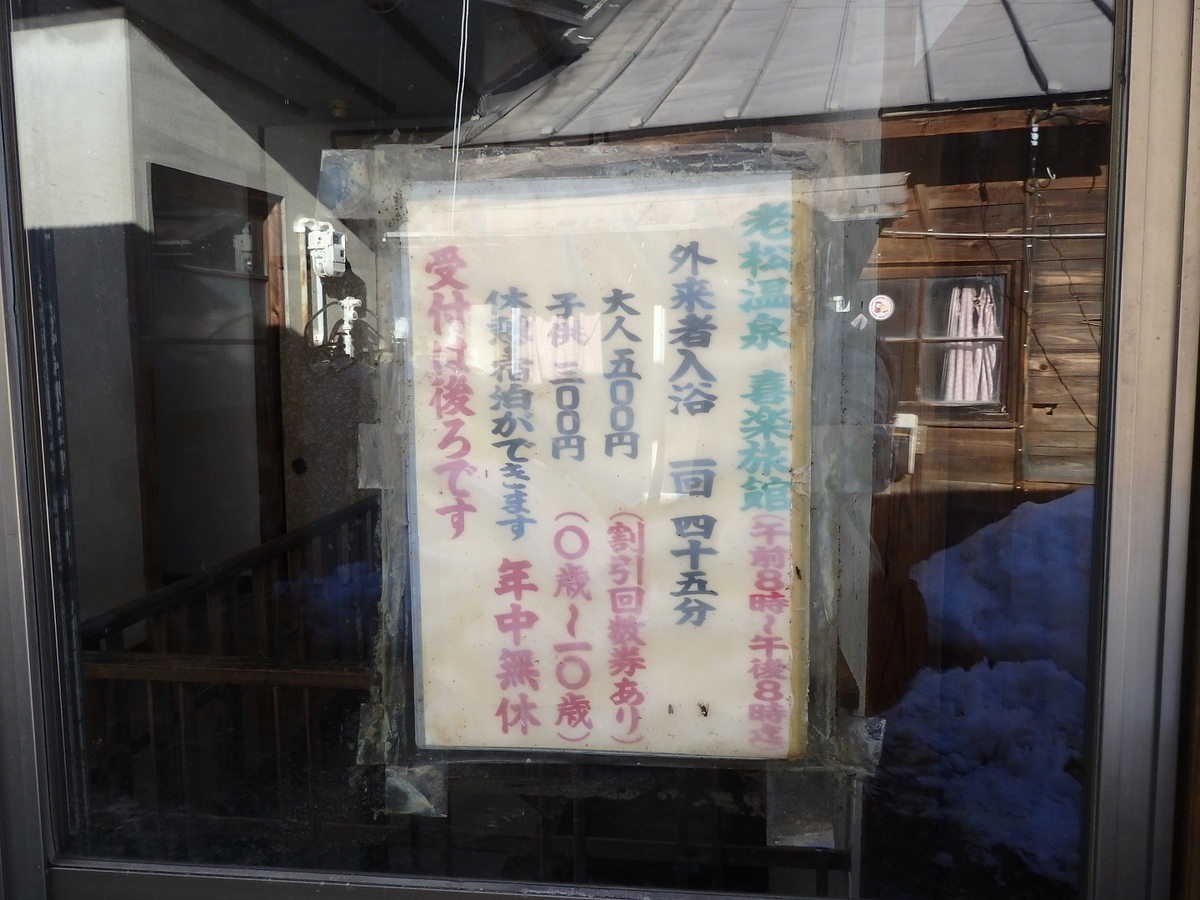 老松温泉 喜楽旅館(午前8時~午後8時迄)
外来者入浴 一回 四十五分
大人 五〇〇円 (割引回数券あり)
子供 三〇〇円 (〇歳~一〇歳)
休憩宿泊ができます 年中無休
受付は後ろです